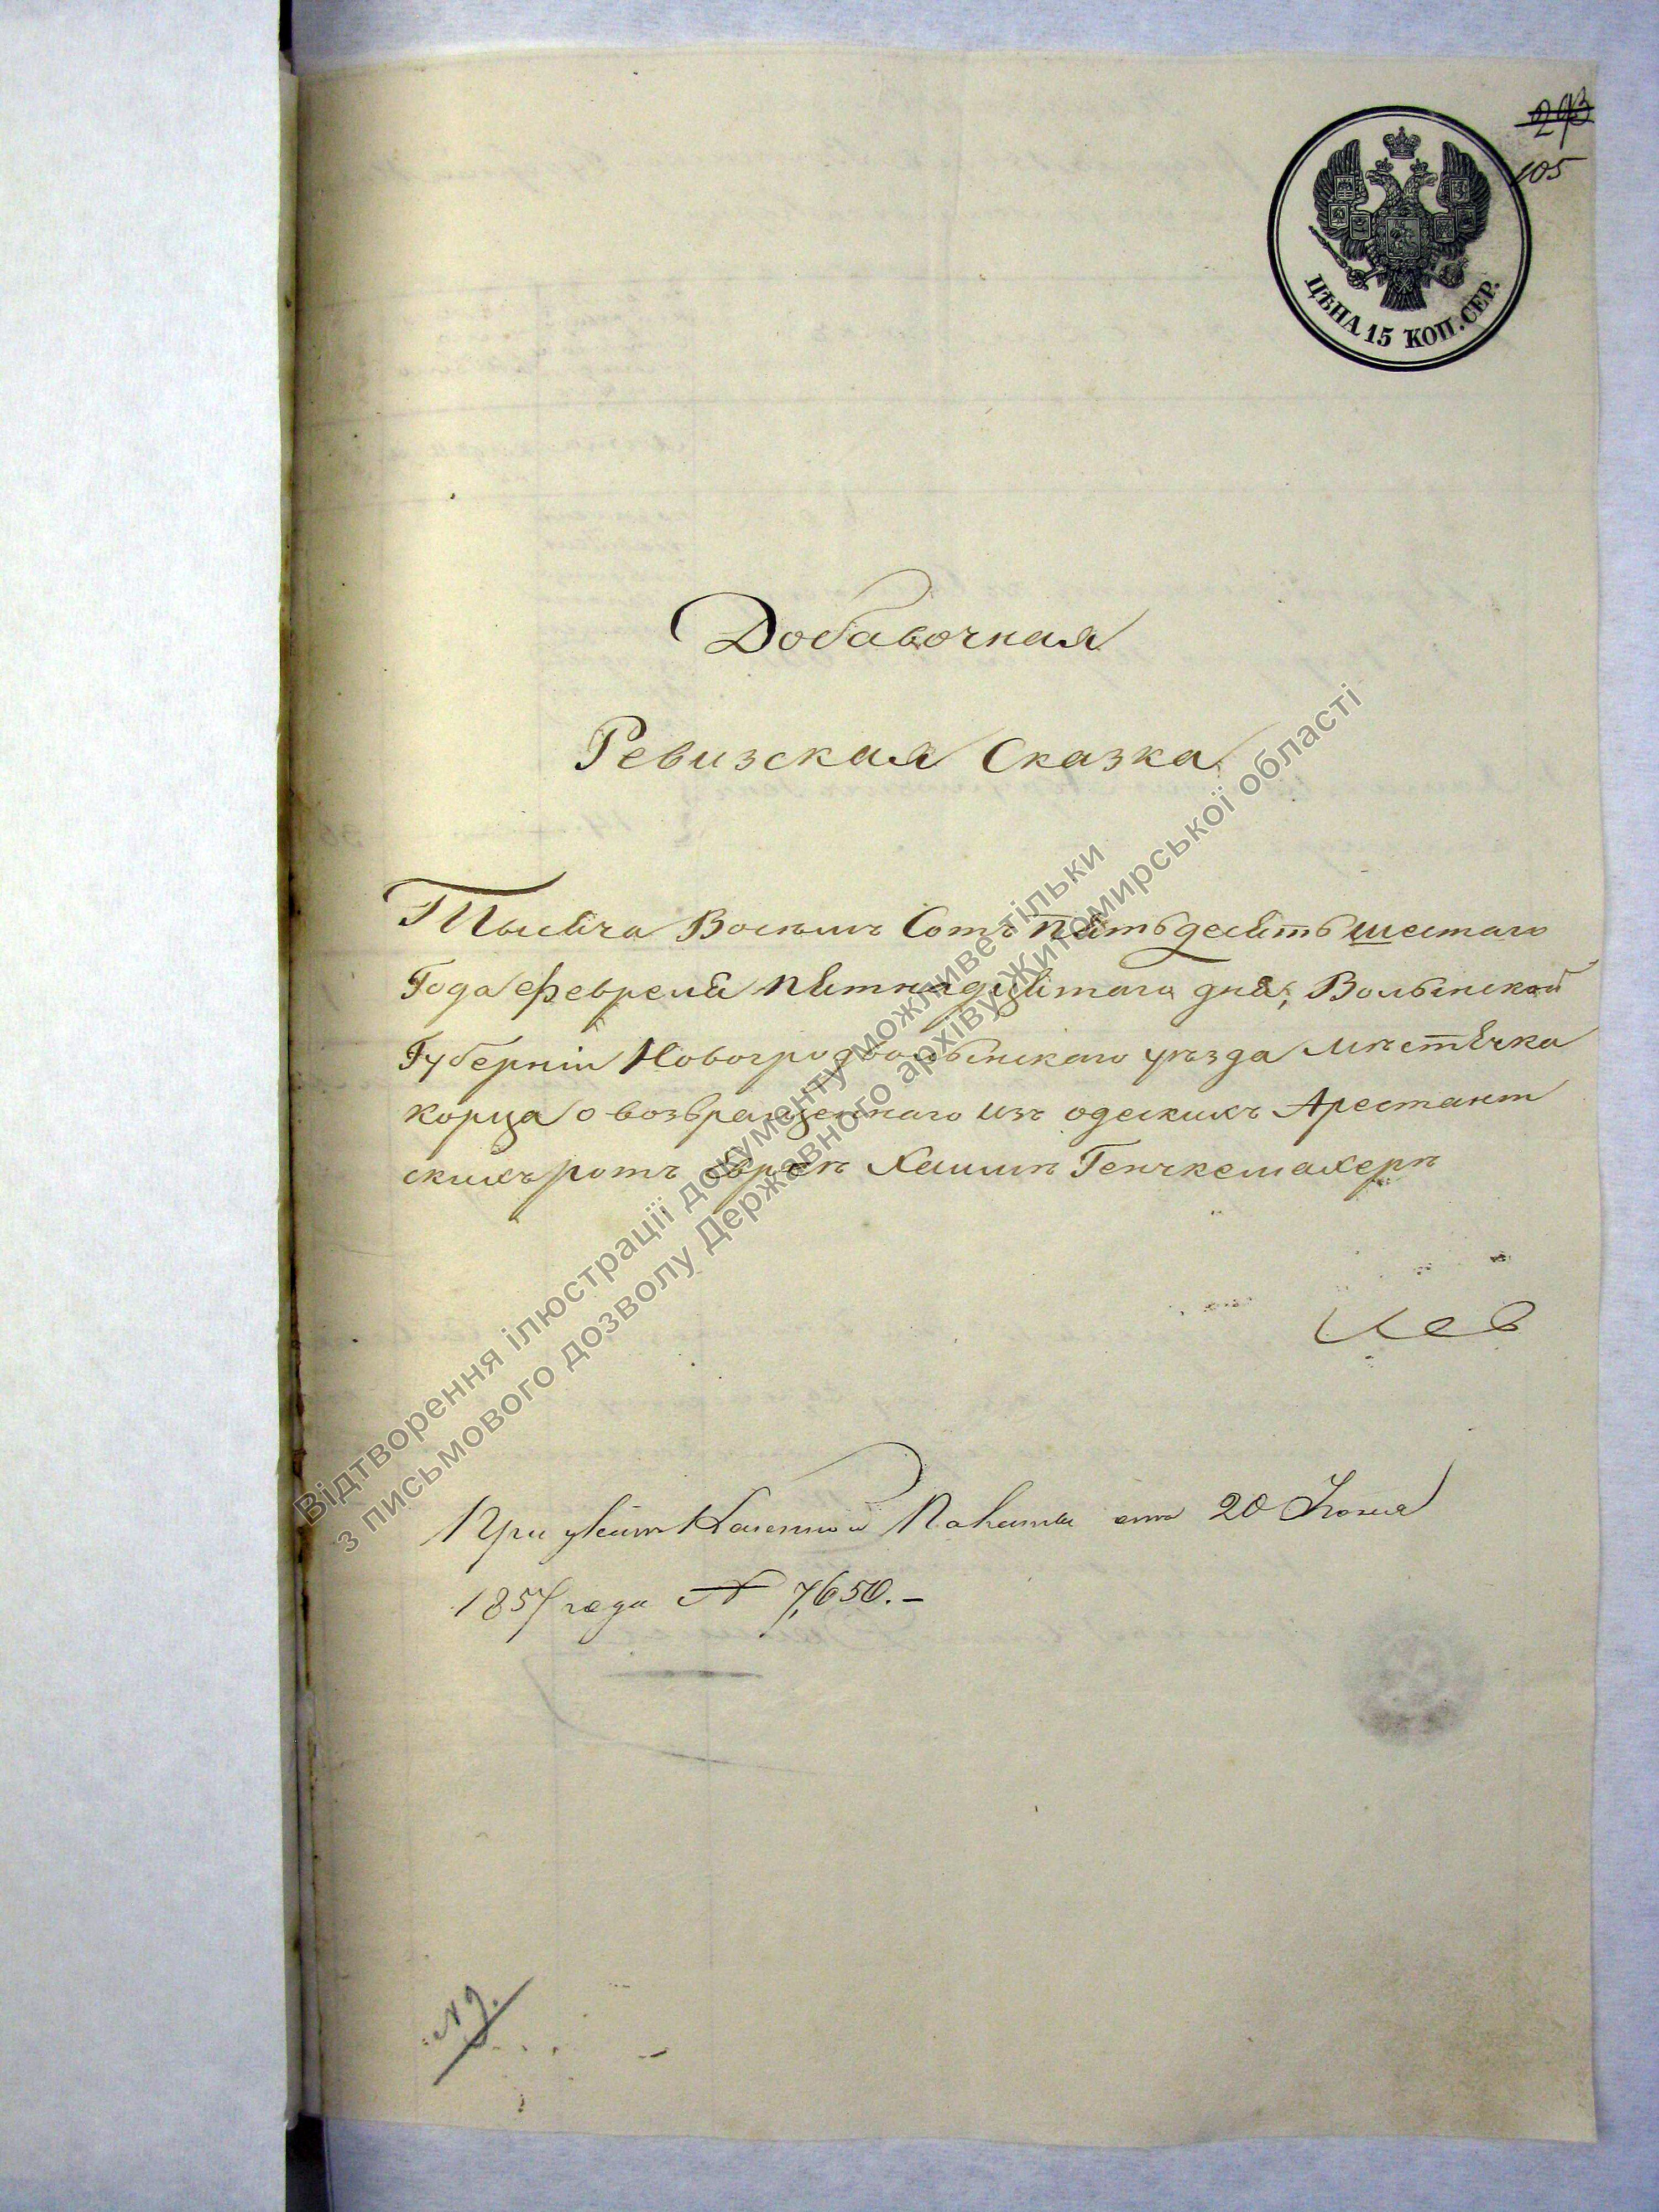 293
105
ЦѢНА 15 КОП. СЕР.
Добавочная
Ревизская Сказка
Тысяча Восемь Сотъ Пятьдесятъ шестаго
Года февраля пятнадцатаго дня, Волынской
Губерніи Новоградволынскаго уѣзда мѣстечка
корца о возвращеннаго изъ одескихъ Арестант
скихъ ротъ еврея
При указѣ Казенной Палаты отъ 20 Іюня
1857 года № 7,650.-
№ 9.
Відтворення ілюстрації документу можливе тільки
з письмового дозволу Державного архіву Житомирської області